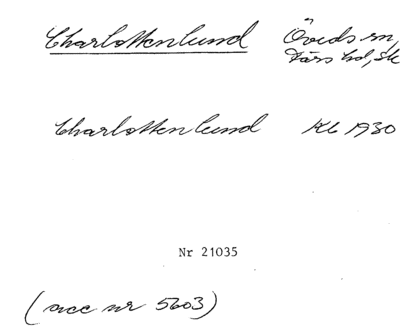 Charlottenlund Öveds sn,
Färs hd, Sk
Charlottenlund Kb 1930
Nr 21035
(acc nr 5603)